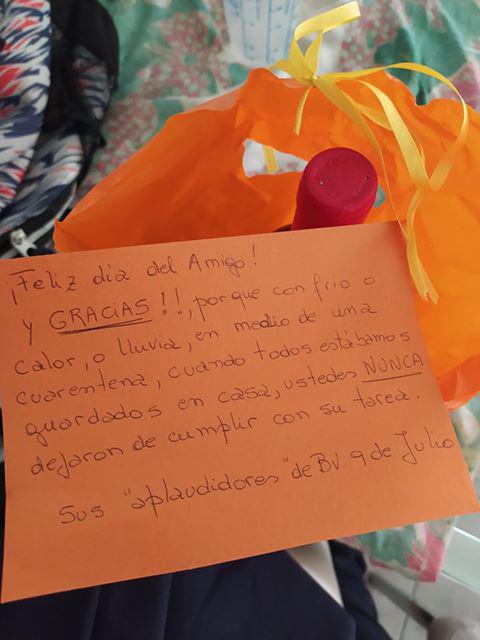 ¡Feliz día del Amigo!
y GRACIAS!!, porque con frío o
calor, o lluvia, en medio de una
cuarentena, cuando todos estábamos
guardados en casa, ustedes NUNCA
dejaron de cumplir con su tarea.
Sus "aplaudidores" de BV. 9 de Julio